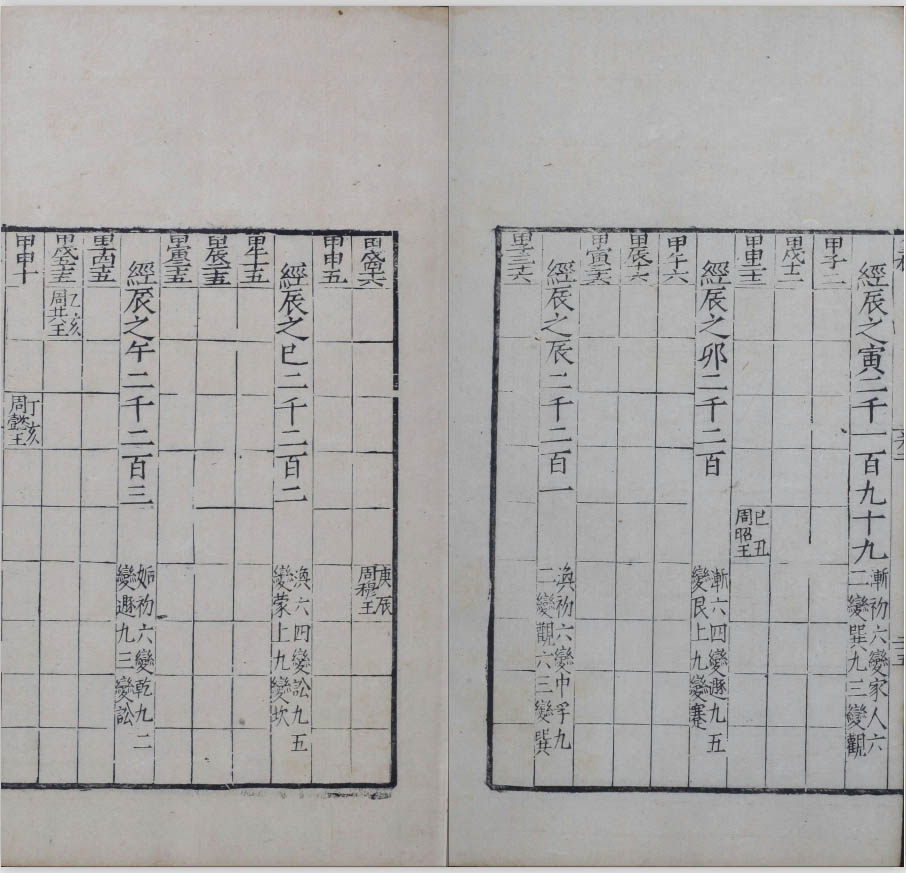 經辰之寅二千一百九十九
漸初六變家人六
二變巽九三變觀
甲子二
甲戌十二
甲申二十二
己丑
周昭王
經辰之卯二千二百
漸六四變遯九五
變艮上九變蹇
甲午六
甲辰十六
甲寅二十六
經辰之辰二千二百一
渙初六變中孚九
二變觀六三變巽
甲子三十六
甲戌四十六
庚辰
周穆王
甲申五
經辰之巳二千二百二
渙六四變訟九五
變蒙上九變坎
甲午十五
甲辰二十五
甲寅三十五
經辰之午二千二百三
姤初六變乾九二
變遯九三變訟
甲子四十五
甲戌五十五
乙亥
周共王
甲申十
丁亥
周懿王